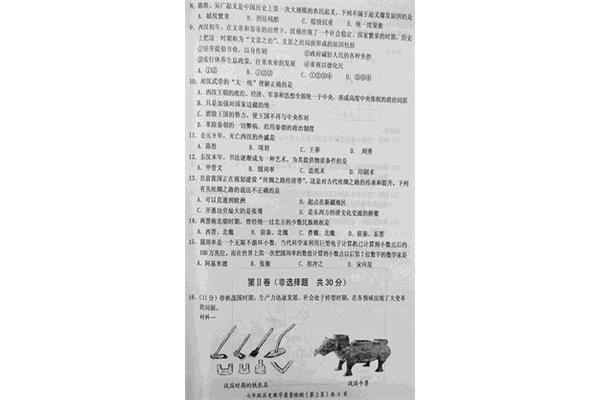 8. 陈胜、吴广起义是中国历史上第一次大规模的农民起义，下列不属于起义爆发原因的是
A. 赋税繁重 B. 刑法残酷 C. 徭役沉重 D. 统一度量衡
9. 西汉初年，在文帝和景帝的治理下，汉朝出现了一个社会稳定、国家繁荣的时期，历史
上把这一时期称为“文景之治”。文景之治局面形成的原因包括
①皇帝提倡节俭，以身作则 ②政府减轻人民的各种负担
③实行休养生息政策，注重农业的发展 ④重视以德化民
A. ①② B. ①②③ C. ①②③④ D. ②③④
10. 对汉武帝的“大一统”理解正确的是
A. 西汉王朝的政治、经济、军事和思想全部统一于中央，形成高度中央集权的政治局面
B. 只是加强对国家边疆的统一
C. 消除王国的势力，使王国不再与中央作对
D. 革除秦朝的一切弊病，沿用秦朝的政治制度
11. 公元9年，灭亡西汉的外戚是
A. 陈胜 B. 项羽 C. 王莽 D. 刘秀
12. 东汉末年，书法逐渐成为一种艺术，为其提供物质条件的是
A. 甲骨文 B. 圆周率 C. 造纸术 D. 印刷术
13. 目前我国正在规划建设“丝绸之路经济带”，这是对古代丝绸之路的传承和提升。下列
有关丝绸之路的说法不正确的是
A. 可以直通到欧洲 B. 起点在新疆地区
C. 开通功劳最大的是张骞 D. 是东西方经济文化交流的桥梁
14. 两晋南北朝时期，曾经统一过北方的少数民族政权是
A. 西晋、北魏 B. 前秦、北魏 C. 曹魏、北魏 D. 前秦、东晋
15. 圆周率是一个无限不循环小数，当代科学家利用巨型电子计算机已计算到小数点后约
100万兆位，而在世界上第一次把圆周率的数值计算到小数点以后第7位数字的数学家是
A. 阿基米德 B. 张衡 C. 祖冲之 D. 宋应星
第Ⅱ卷（非选择题 共30分）
16. (11分) 春秋战国时期，生产力迅速发展，社会处于转型时期，在各领域出现了大变革
的局面。
材料一
战国时期的铁农具 战国牛尊
七年级历史教学质量检测（第2页）共4页